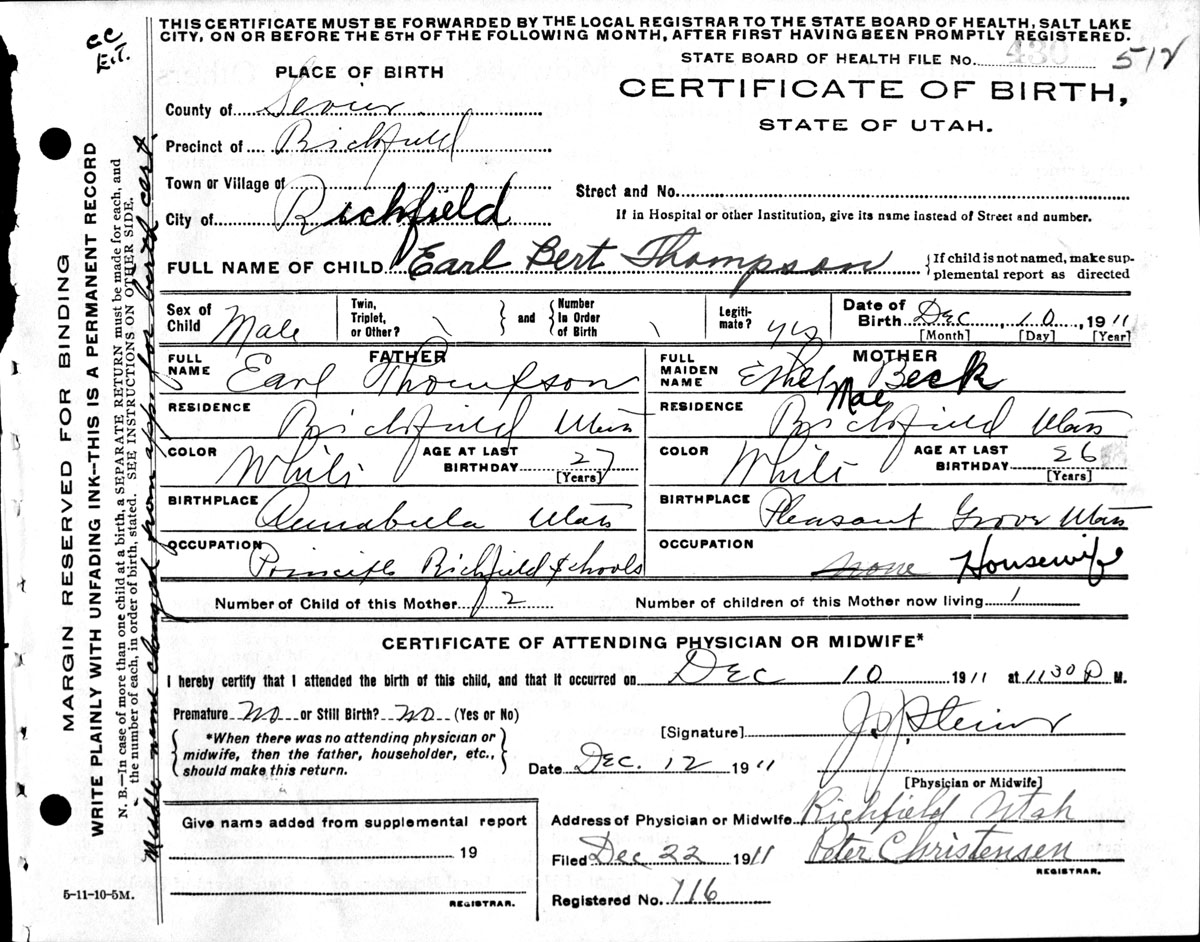 THIS CERTIFICATE MUST BE FORWARDED BY THE LOCAL REGISTRAR TO THE STATE BOARD OF HEALTH, SALT LAKE
CITY, ON OR BEFORE THE 5TH OF THE FOLLOWING MONTH, AFTER FIRST HAVING BEEN PROMPTLY REGISTERED.
CC
E.T.
STATE BOARD OF HEALTH FILE No. 430 512
PLACE OF BIRTH
CERTIFICATE OF BIRTH,
STATE OF UTAH.
County of Sevier
Precinct of Richfield
Town or Village of
Street and No.
City of Richfield
If in Hospital or other Institution, give its name instead of Street and number.
FULL NAME OF CHILD Earl Bert Thompson
{If child is not named, make sup-
plemental report as directed
Sex of Child Male
Twin, Triplet, or Other?
and
Number In Order of Birth
Legiti-mate? yes
Date of Birth Dec, 10, 1911
[Month] [Day] [Year]
FATHER
FULL NAME Earl Thompson
RESIDENCE Richfield Utah
COLOR White
AGE AT LAST BIRTHDAY 27
[Years]
BIRTHPLACE Annabella Utah
OCCUPATION Principle Richfield Schools
MOTHER
FULL MAIDEN NAME Ethel Mae Beck
RESIDENCE Richfield Utah
COLOR White
AGE AT LAST BIRTHDAY 26
[Years]
BIRTHPLACE Pleasant Grove Utah
OCCUPATION none Housewife
Number of Child of this Mother 2 Number of children of this Mother now living 1
CERTIFICATE OF ATTENDING PHYSICIAN OR MIDWIFE*
I hereby certify that I attended the birth of this child, and that it occurred on Dec 10 1911 at 1130 P M.
Premature No or Still Birth? No (Yes or No)
*When there was no attending physician or
midwife, then the father, householder, etc.,
should make this return.
[Signature] J. J. Steiner
Date Dec. 12 1911
[Physician or Midwife]
Give name added from supplemental report
19
REGISTRAR.
Address of Physician or Midwife Richfield Utah
Filed Dec 22 1911 Peter Christensen
REGISTRAR.
Registered No. 116
5-11-10-5M.
MARGIN RESERVED FOR BINDING
WRITE PLAINLY WITH UNFADING INK--THIS IS A PERMANENT RECORD
N. B.—In case of more than one child at a birth, a SEPARATE RETURN must be made for each, and
the number of each, in order of birth, stated. SEE INSTRUCTIONS ON OTHER SIDE.
Middle name changed from appli for burid cert.